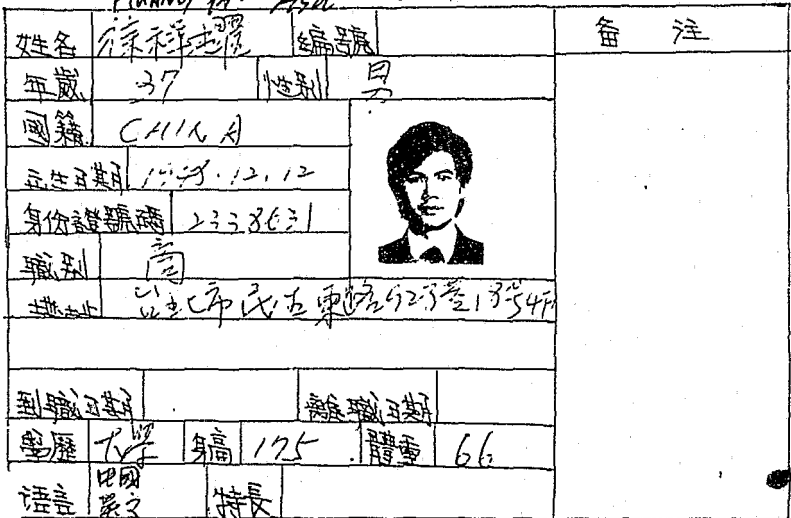 姓名 徐祥 編號 備 注
年歲 37 性别 男
國籍 CHINA
出生日期 12.12
身份證號碼 2338631
職别 商
地址 台北市民生東路923巷13号4F
到職日期 離職日期
學歷 大學 身高 175 體重 66
语言 中国 英文 特長